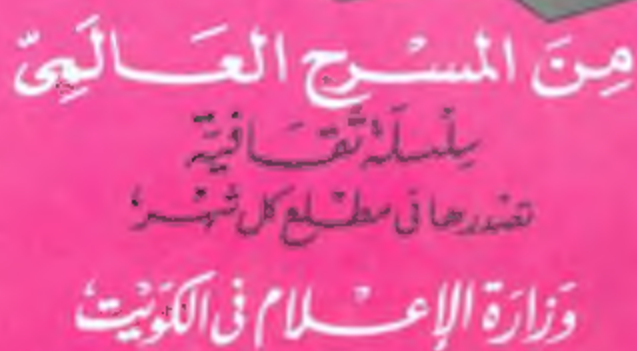 مِنَ المسْرح العَالَمِيّ
سِلْسلَة ثَقَافيَّة
تصْدرها فى مطْلع كل شهْر
وَزارَة الإعْلام فى الكوَيْت